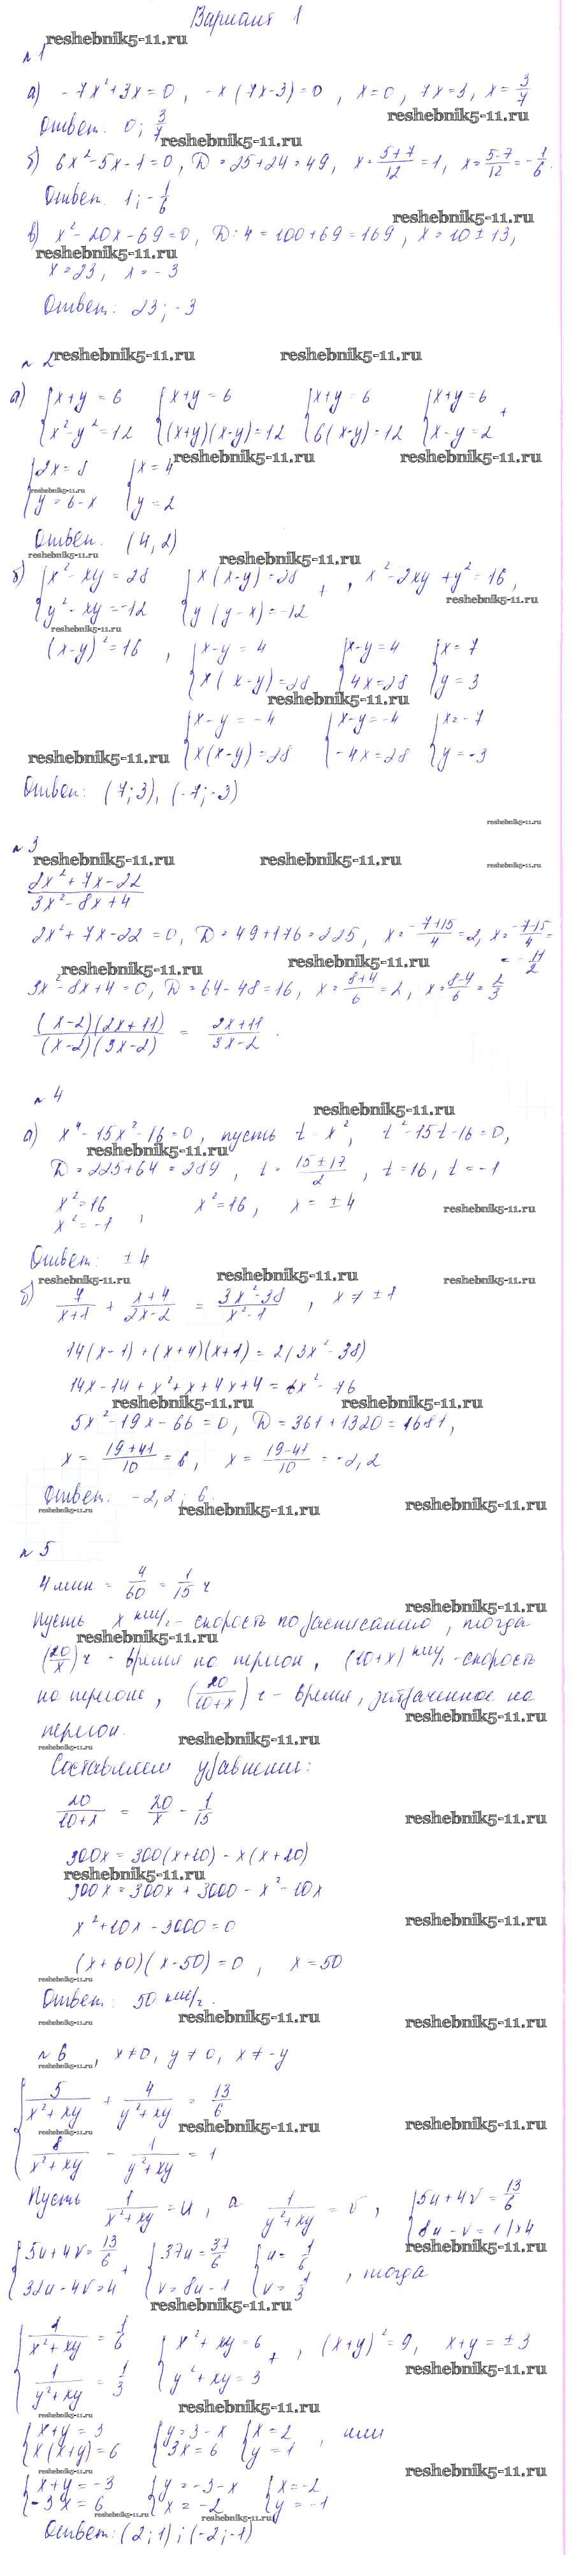 Вариант 1
reshebnik5-11.ru
№ 1
а) -7x²+3x=0, -x(7x-3)=0, x=0, 7x=3, x=3/7
reshebnik5-11.ru
Ответ: 0; 3/7
reshebnik5-11.ru
б) 6x²-5x-1=0, D=25+24=49, x=(5+7)/12=1, x=(5-7)/12=-1/6.
Ответ. 1; -1/6
reshebnik5-11.ru
в) x²-20x-69=0, D:4=100+69=169, x=10±13,
reshebnik5-11.ru
x=23, x=-3
Ответ: 23; -3
№ 2 reshebnik5-11.ru reshebnik5-11.ru
а) {x+y=6 {x+y=6 {x+y=6 {x+y=6 +
{x²-y²=12 {(x+y)(x-y)=12 {6(x-y)=12 {x-y=2
reshebnik5-11.ru reshebnik5-11.ru
{2x=8 {x=4
reshebnik5-11.ru
{y=6-x {y=2
Ответ. (4,2)
reshebnik5-11.ru reshebnik5-11.ru
б) {x²-xy=28 {x(x-y)=28 + , x²-2xy+y²=16,
{y²-xy=-12 {y(y-x)=-12
reshebnik5-11.ru reshebnik5-11.ru
(x-y)²=16 , {x-y=4 {x-y=4 {x=7
{x(x-y)=28 {4x=28 {y=3
reshebnik5-11.ru
{x-y=-4 {x-y=-4 {x=-7
reshebnik5-11.ru {x(x-y)=28 {-4x=28 {y=-3
Ответ: (7;3), (-7;-3)
reshebnik5-11.ru
№ 3
reshebnik5-11.ru reshebnik5-11.ru reshebnik5-11.ru
(2x²+7x-22)/(3x²-8x+4)
2x²+7x-22=0, D=49+176=225, x=(-7+15)/4=2, x=(-7-15)/4=
reshebnik5-11.ru reshebnik5-11.ru =-11/2
3x²-8x+4=0, D=64-48=16, x=(8+4)/6=2, x=(8-4)/6=2/3
((x-2)(2x+11))/((x-2)(3x-2)) = (2x+11)/(3x-2).
№ 4
reshebnik5-11.ru
а) x⁴-15x²-16=0, пусть t=x², t²-15t-16=0,
reshebnik5-11.ru
D=225+64=289, t=(15±17)/2, t=16, t=-1
x²=16 , x²=16, x=±4
x²=-1
reshebnik5-11.ru
Ответ: ±4
reshebnik5-11.ru reshebnik5-11.ru reshebnik5-11.ru
б) 7/(x+1) + (x+4)/(2x-2) = (3x²-38)/(x²-1) , x≠±1
14(x-1)+(x+4)(x+1)=2(3x²-38)
14x-14+x²+x+4x+4=6x²-76
reshebnik5-11.ru reshebnik5-11.ru
5x²-19x-66=0, D=361+1320=1681,
x=(19+41)/10=6, x=(19-41)/10=-2,2
Ответ. -2,2; 6.
reshebnik5-11.ru reshebnik5-11.ru reshebnik5-11.ru
№ 5
4 мин = 4/60 = 1/15 ч
reshebnik5-11.ru
Пусть x км/ч - скорость по расписанию, тогда
reshebnik5-11.ru
(20/x) ч - время на перегон, (10+x) км/ч - скорость
на перегоне, (20/(10+x)) ч - время, затраченное на
reshebnik5-11.ru
перегон.
reshebnik5-11.ru reshebnik5-11.ru
Составляем уравнение:
20/(10+x) = 20/x - 1/15
reshebnik5-11.ru
300x=300(x+10)-x(x+10)
reshebnik5-11.ru
300x=300x+3000-x²-10x
x²+10x-3000=0
reshebnik5-11.ru
(x+60)(x-50)=0, x=50
reshebnik5-11.ru reshebnik5-11.ru
Ответ: 50 км/ч.
reshebnik5-11.ru reshebnik5-11.ru reshebnik5-11.ru
№ 6 , x≠0, y≠0, x≠-y
reshebnik5-11.ru
{5/(x²+xy) + 4/(y²+xy) = 13/6
reshebnik5-11.ru reshebnik5-11.ru reshebnik5-11.ru
{8/(x²+xy) - 1/(y²+xy) = 1
Пусть 1/(x²+xy)=u, а 1/(y²+xy)=v, {5u+4v=13/6
{8u-v=1 |×4
reshebnik5-11.ru
{5u+4v=13/6 + {37u=37/6 {u=1/6 , тогда
{32u-4v=4 {v=8u-1 {v=1/3
reshebnik5-11.ru
{1/(x²+xy)=1/6 {x²+xy=6 + , (x+y)²=9, x+y=±3
{1/(y²+xy)=1/3 {y²+xy=3
reshebnik5-11.ru
reshebnik5-11.ru
{x+y=3 {y=3-x {x=2 , или
{x(x+y)=6 {3x=6 {y=1
reshebnik5-11.ru reshebnik5-11.ru
{x+y=-3 {y=-3-x {x=-2
{-3x=6 {x=-2 {y=-1
reshebnik5-11.ru reshebnik5-11.ru
Ответ: (2;1); (-2;-1)